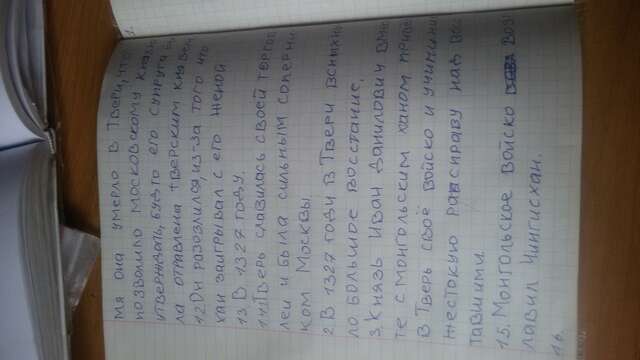 мя она умерло в Твери, что
позволило московскому князю
утверждать, будто его супруга бы
ла отравлена тверским князем
12 Он разозлился, из-за того что
хан заигрывал с его женой
13. В 1327 году.
14. 1 Тверь славилась своей торгов
лей и была сильным соперни
ком Москвы.
2 В 1327 году в Твери вспыхну
ло большое восстание.
3. Князь Иван Данилович вме
те с монгольским ханом приве
в Тверь своё войско и учинили
жестокую расправу над вос
тавшими.
15. Монгольское войско воз
главил Чингисхан.
16.